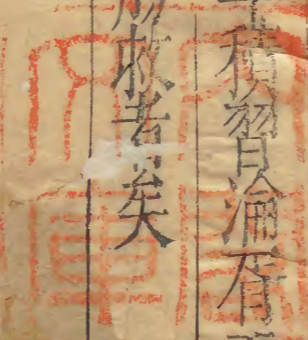 積習淪胥
救者矣